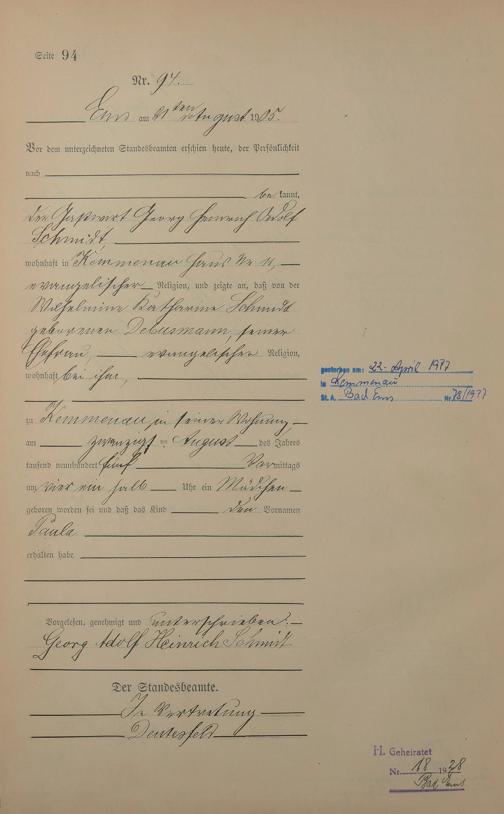 Seite 94
Nr. 94.
Ems am 21ten August 1905.
Vor dem unterzeichneten Standesbeamten erschien heute, der Persönlichkeit
nach
bekannt,
der Gastwirt Georg Heinrich Adolf
Schmidt,
wohnhaft in Kemmenau Haus Nr 11,
evangelischer Religion, und zeigte an, daß von der
Wilhelmine Katharine Schmidt
geborenen Debusmann, seiner
Ehefrau, evangelischer Religion,
wohnhaft bei ihm,
zu Kemmenau, in seiner Wohnung,
am zwanzigsten August des Jahres
tausend neunhundert fünf Vormittags
um vier ein halb Uhr ein Mädchen
geboren worden sei und daß das Kind den Vornamen
Paula
erhalten habe
Vorgelesen, genehmigt und unterschrieben.
Georg Adolf Heinrich Schmidt
Der Standesbeamte.
In Vertretung
gestorben am: 22. April 1977
in Kemmenau
St. A. Bad Ems Nr 78/1977
H. Geheiratet
Nr. 18 1928
Bad Ems